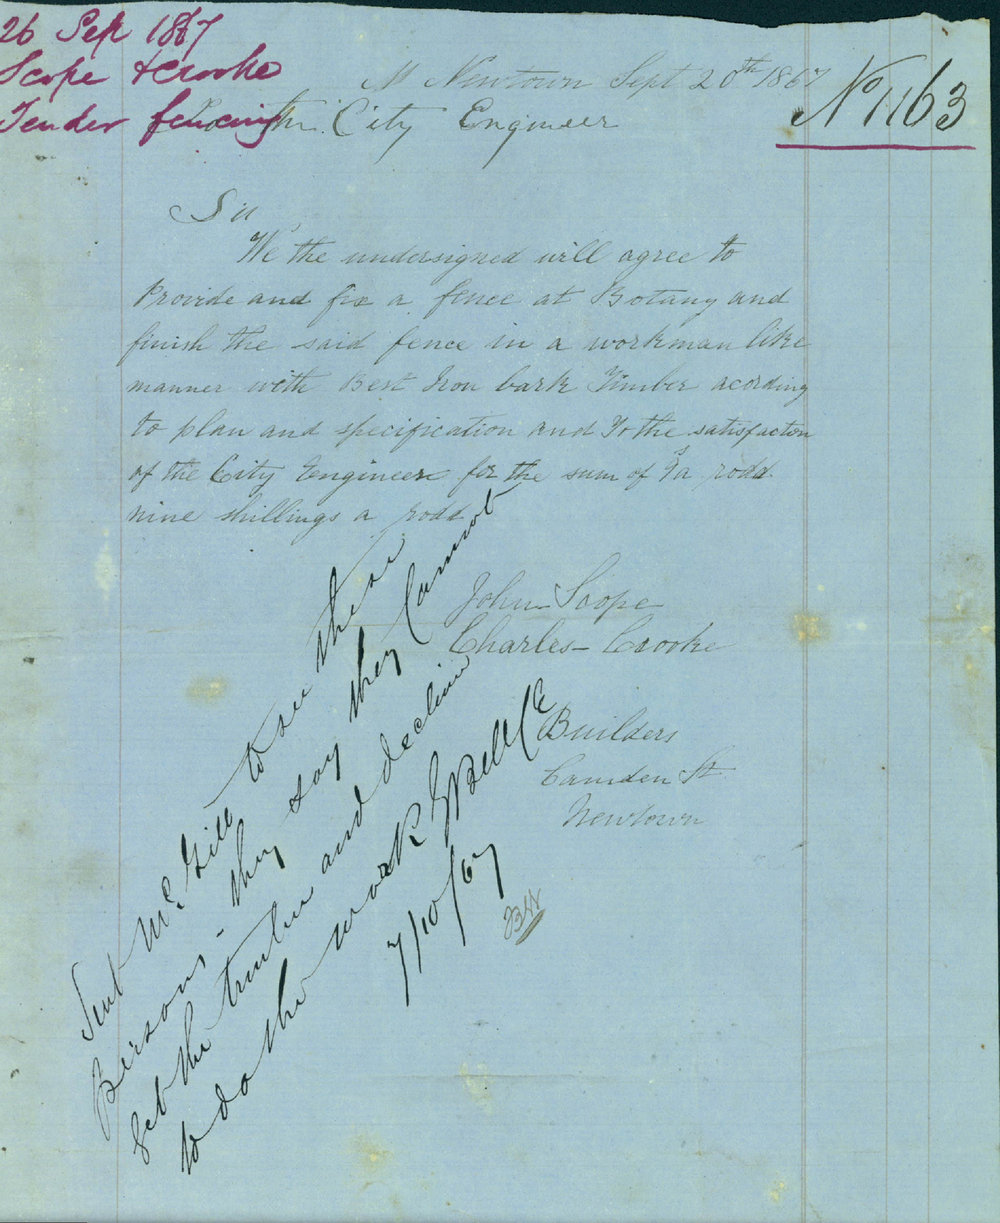 26 Sep 1867
Scope & Crooke
Tender fencing
Newtown Sept 20th 1867
No 1163
City Engineer
Sir
We the undersigned will agree to
Provide and fix a fence at Botany and
finish the said fence in a workman like
manner with Best Iron bark Timber acording
to plan and specification and To the satisfacton
of the City Engineer for the sum of 9/ a rodd
nine shillings a rodd
John Scope
Charles Crooke
Builders
Camden St
Newtown
Sent McGill to see these
persons - they say they Cannot
get the timber and decline
to do the work E Bell CE
7/10/67